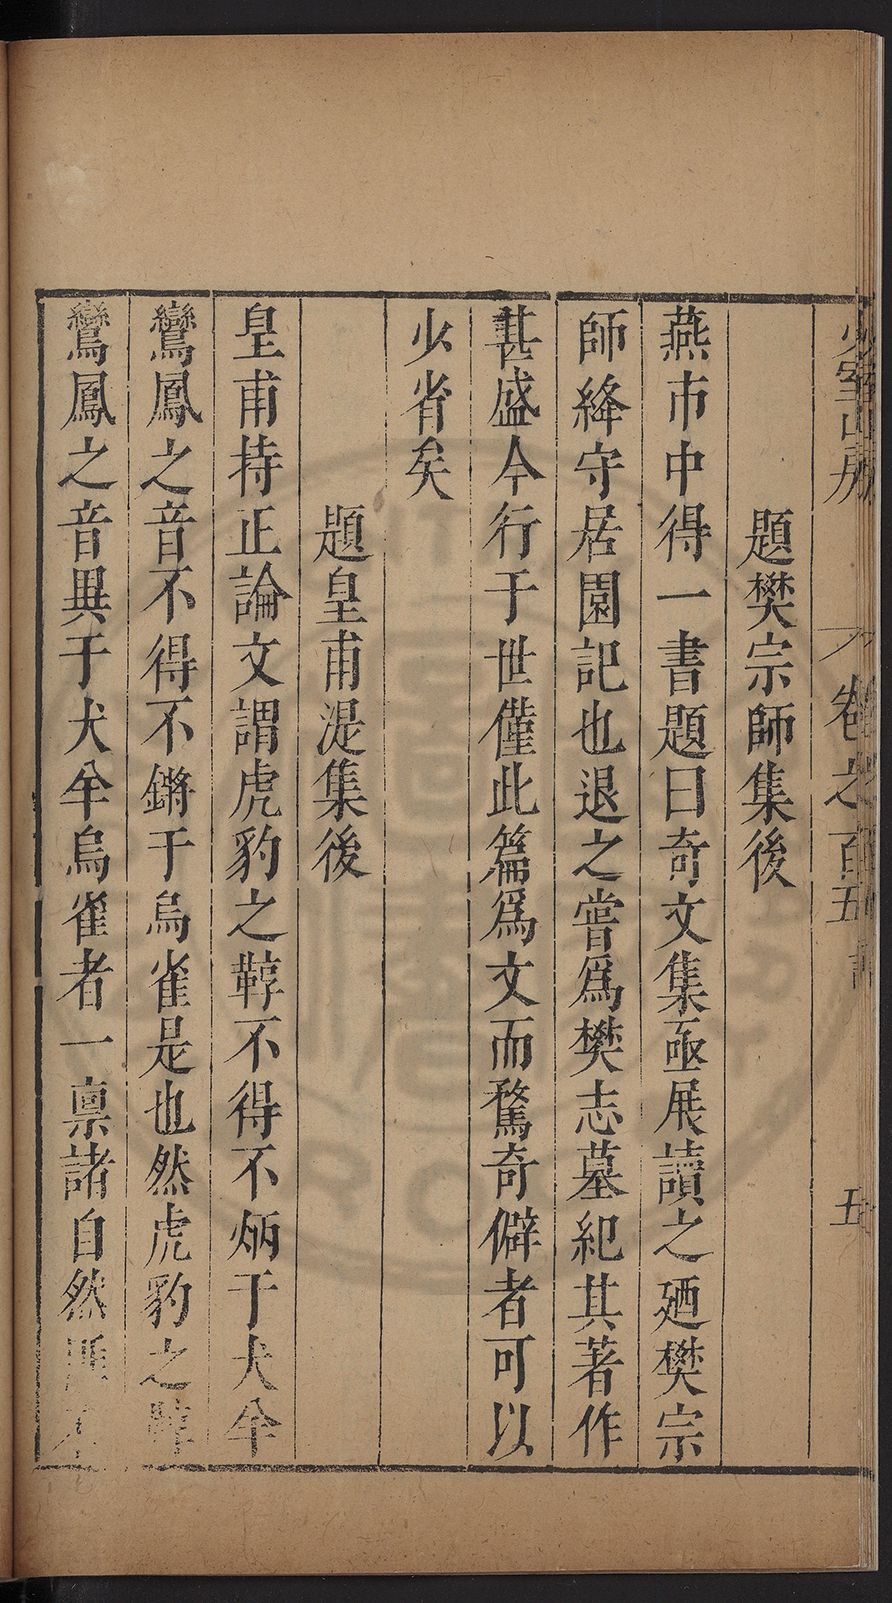 少室山房 卷之百五 五
題樊宗師集後
燕市中得一書題曰奇文集亟展讀之廼樊宗
師絳守居園記也退之嘗爲樊志墓紀其著作
甚盛今行于世僅此篇爲文而騖奇僻者可以
少省矣
題皇甫湜集後
皇甫持正論文謂虎豹之鞟不得不炳于犬羊
鸞鳳之音不得不鏘于烏雀是也然虎豹之鞟
鸞鳳之音異于犬羊烏雀者一禀諸自然